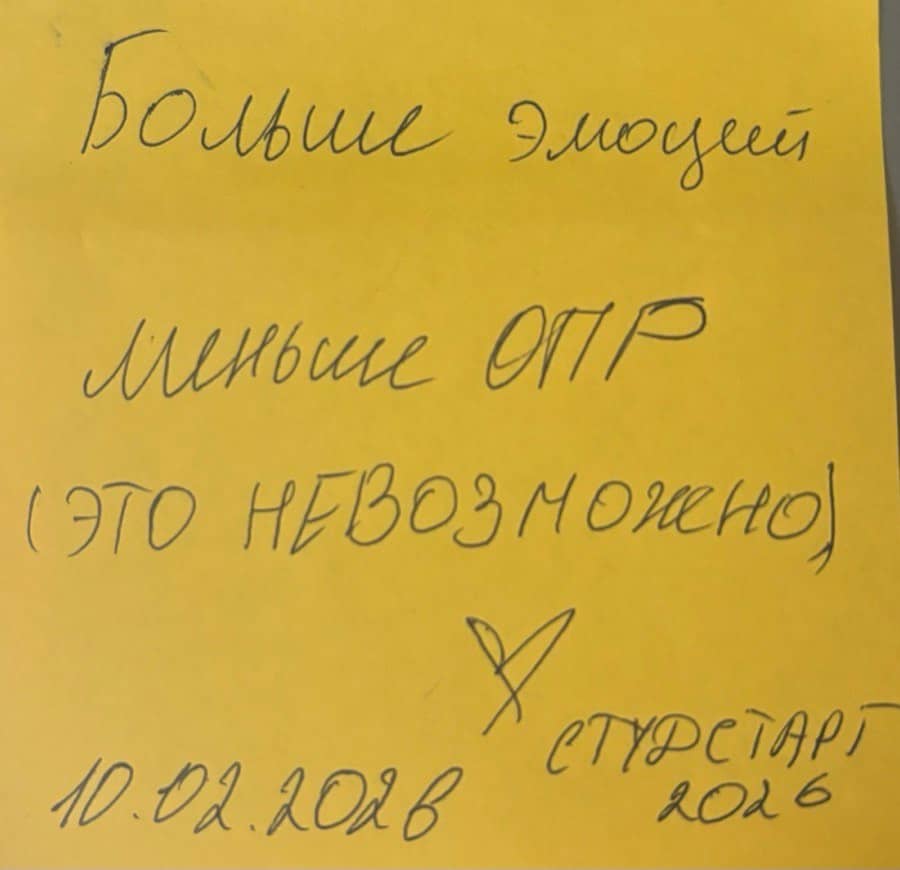 Больше эмоций
меньше ОПР
(ЭТО НЕВОЗМОЖНО)
СТУДСТАРТ
10.02.2026
2026